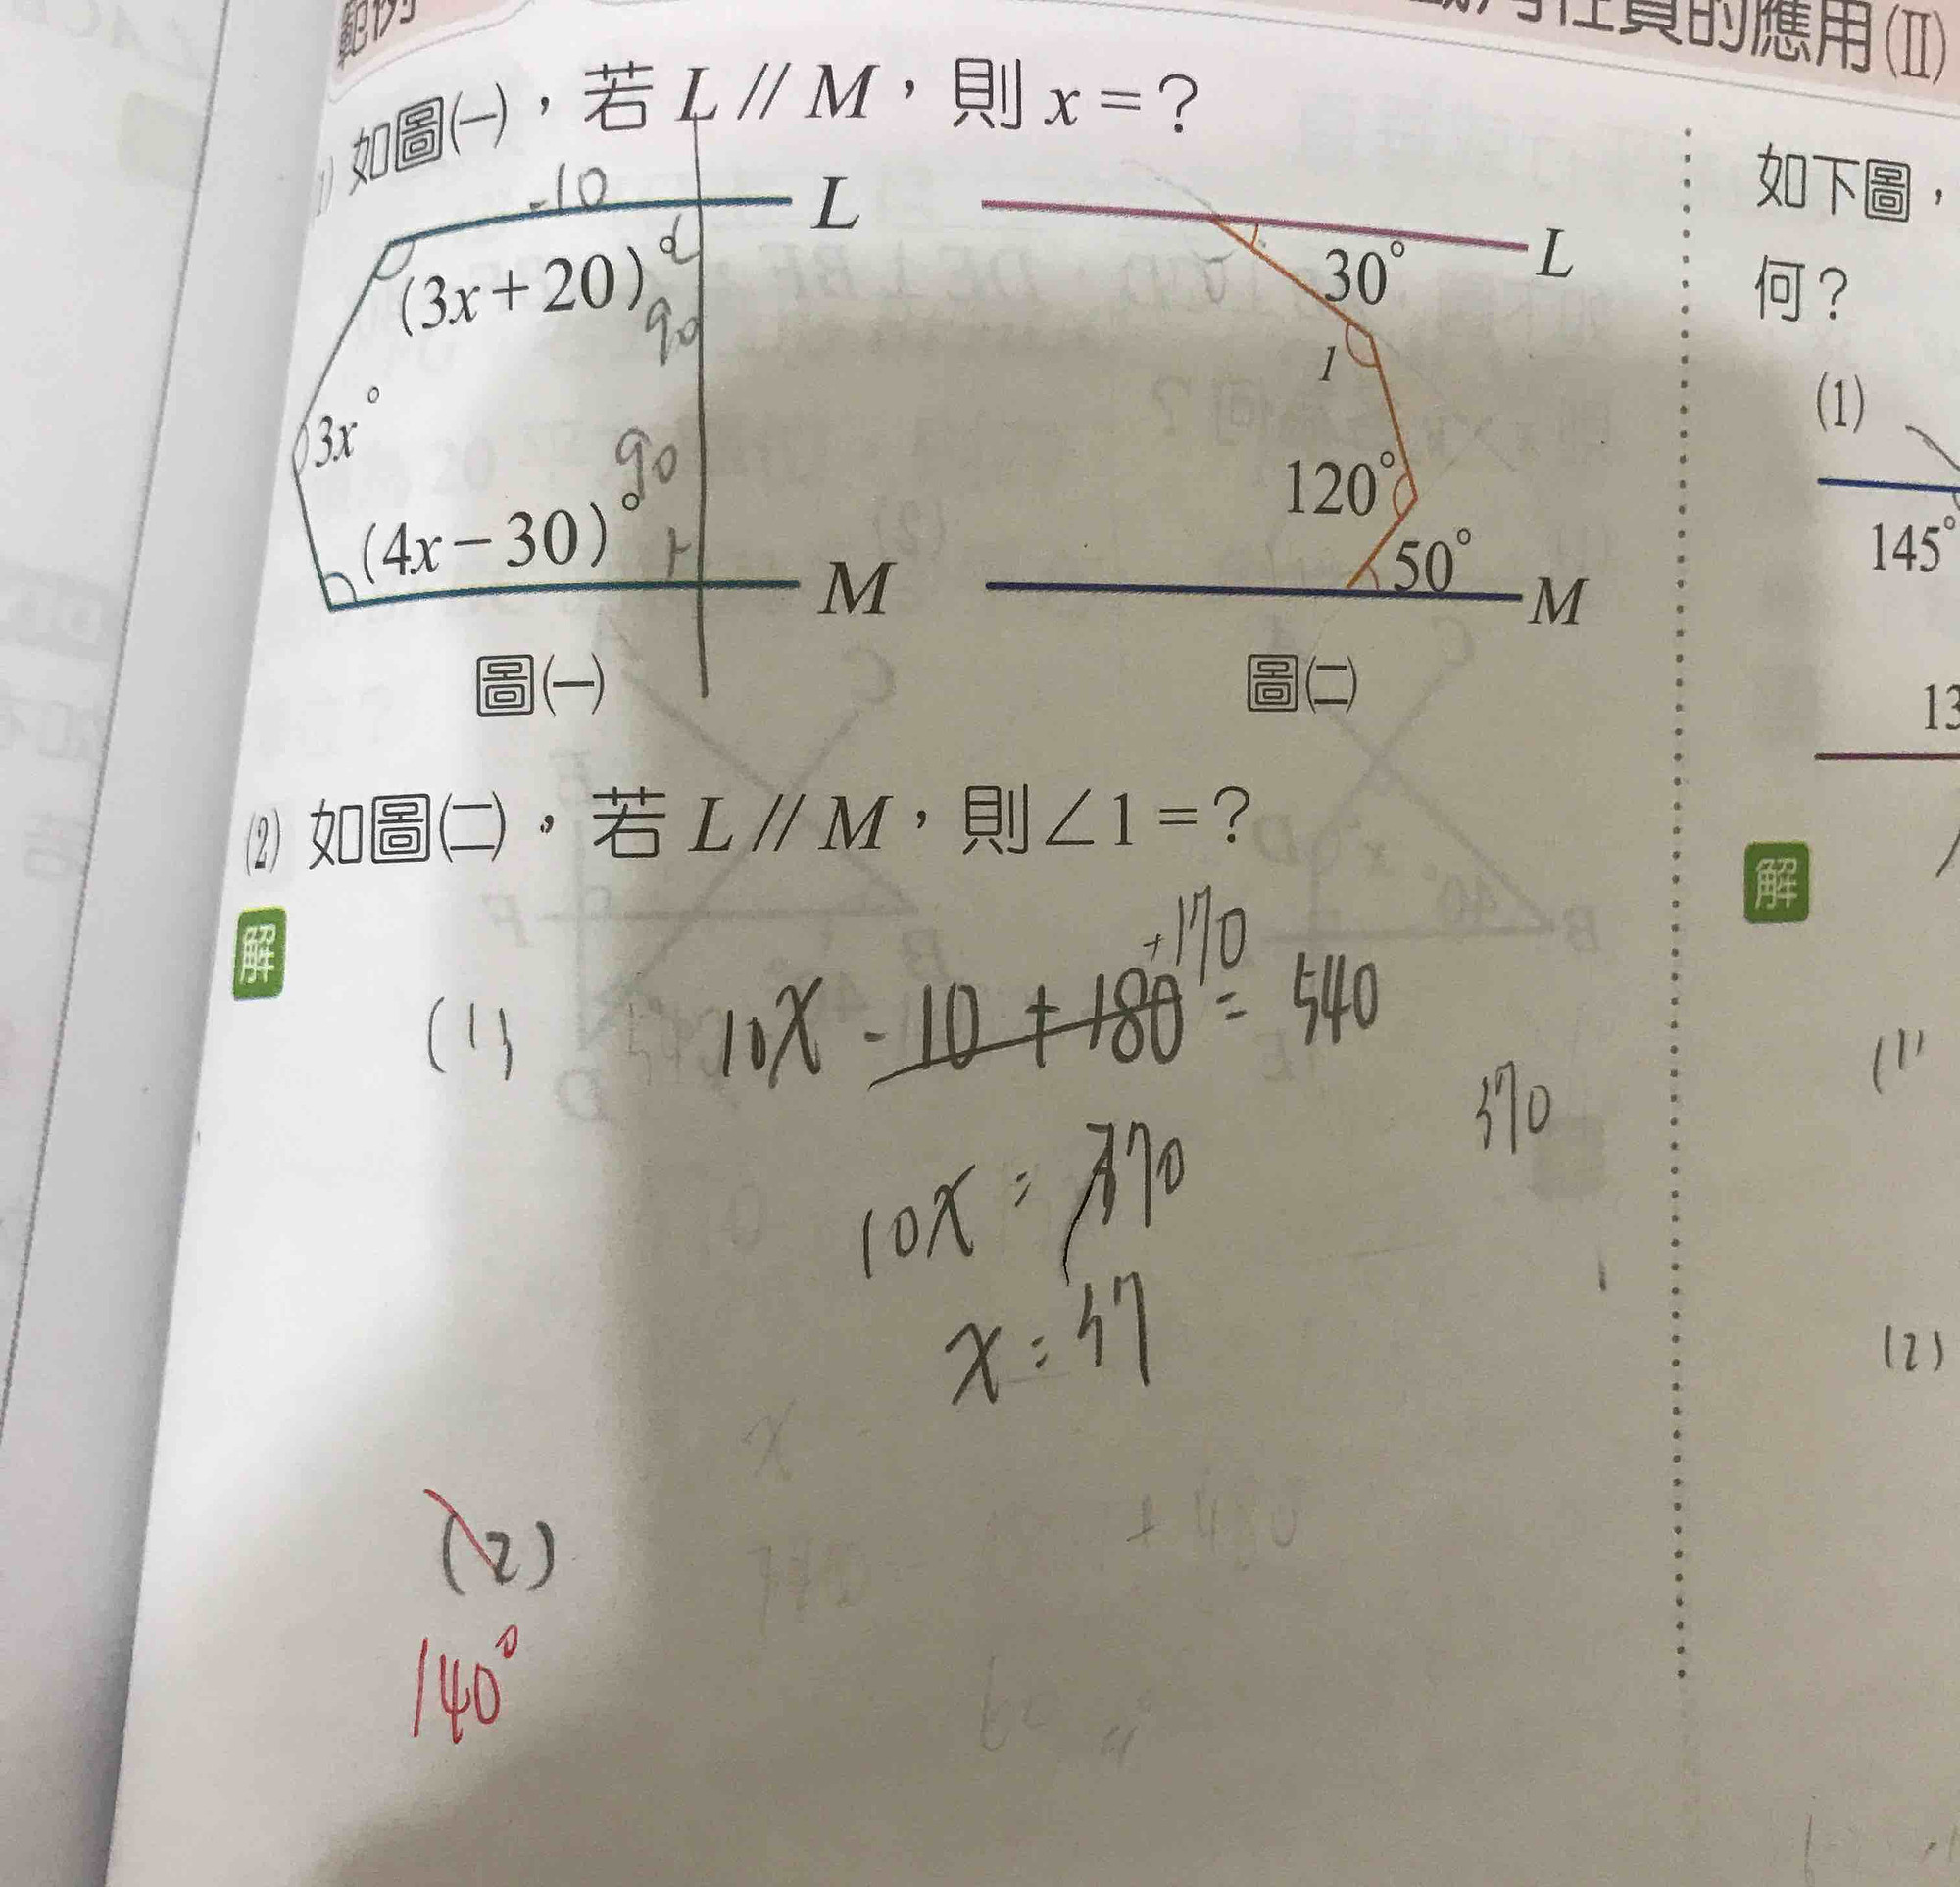 範例
性質的應用(II)
(1) 如圖(一)，若 L // M，則 x = ?
-10
L
(3x+20)°
90
3x°
90
(4x-30)°
M
圖(一)
L
30°
1
120°
50°
M
圖(二)
(2) 如圖(二)，若 L // M，則∠1 = ?
解
+170
(1) 10x - 10 + 180 = 540
370
10x = 370
x = 37
(2)
140°
如下圖，
何？
(1)
145°
13
解
(1)
(2)